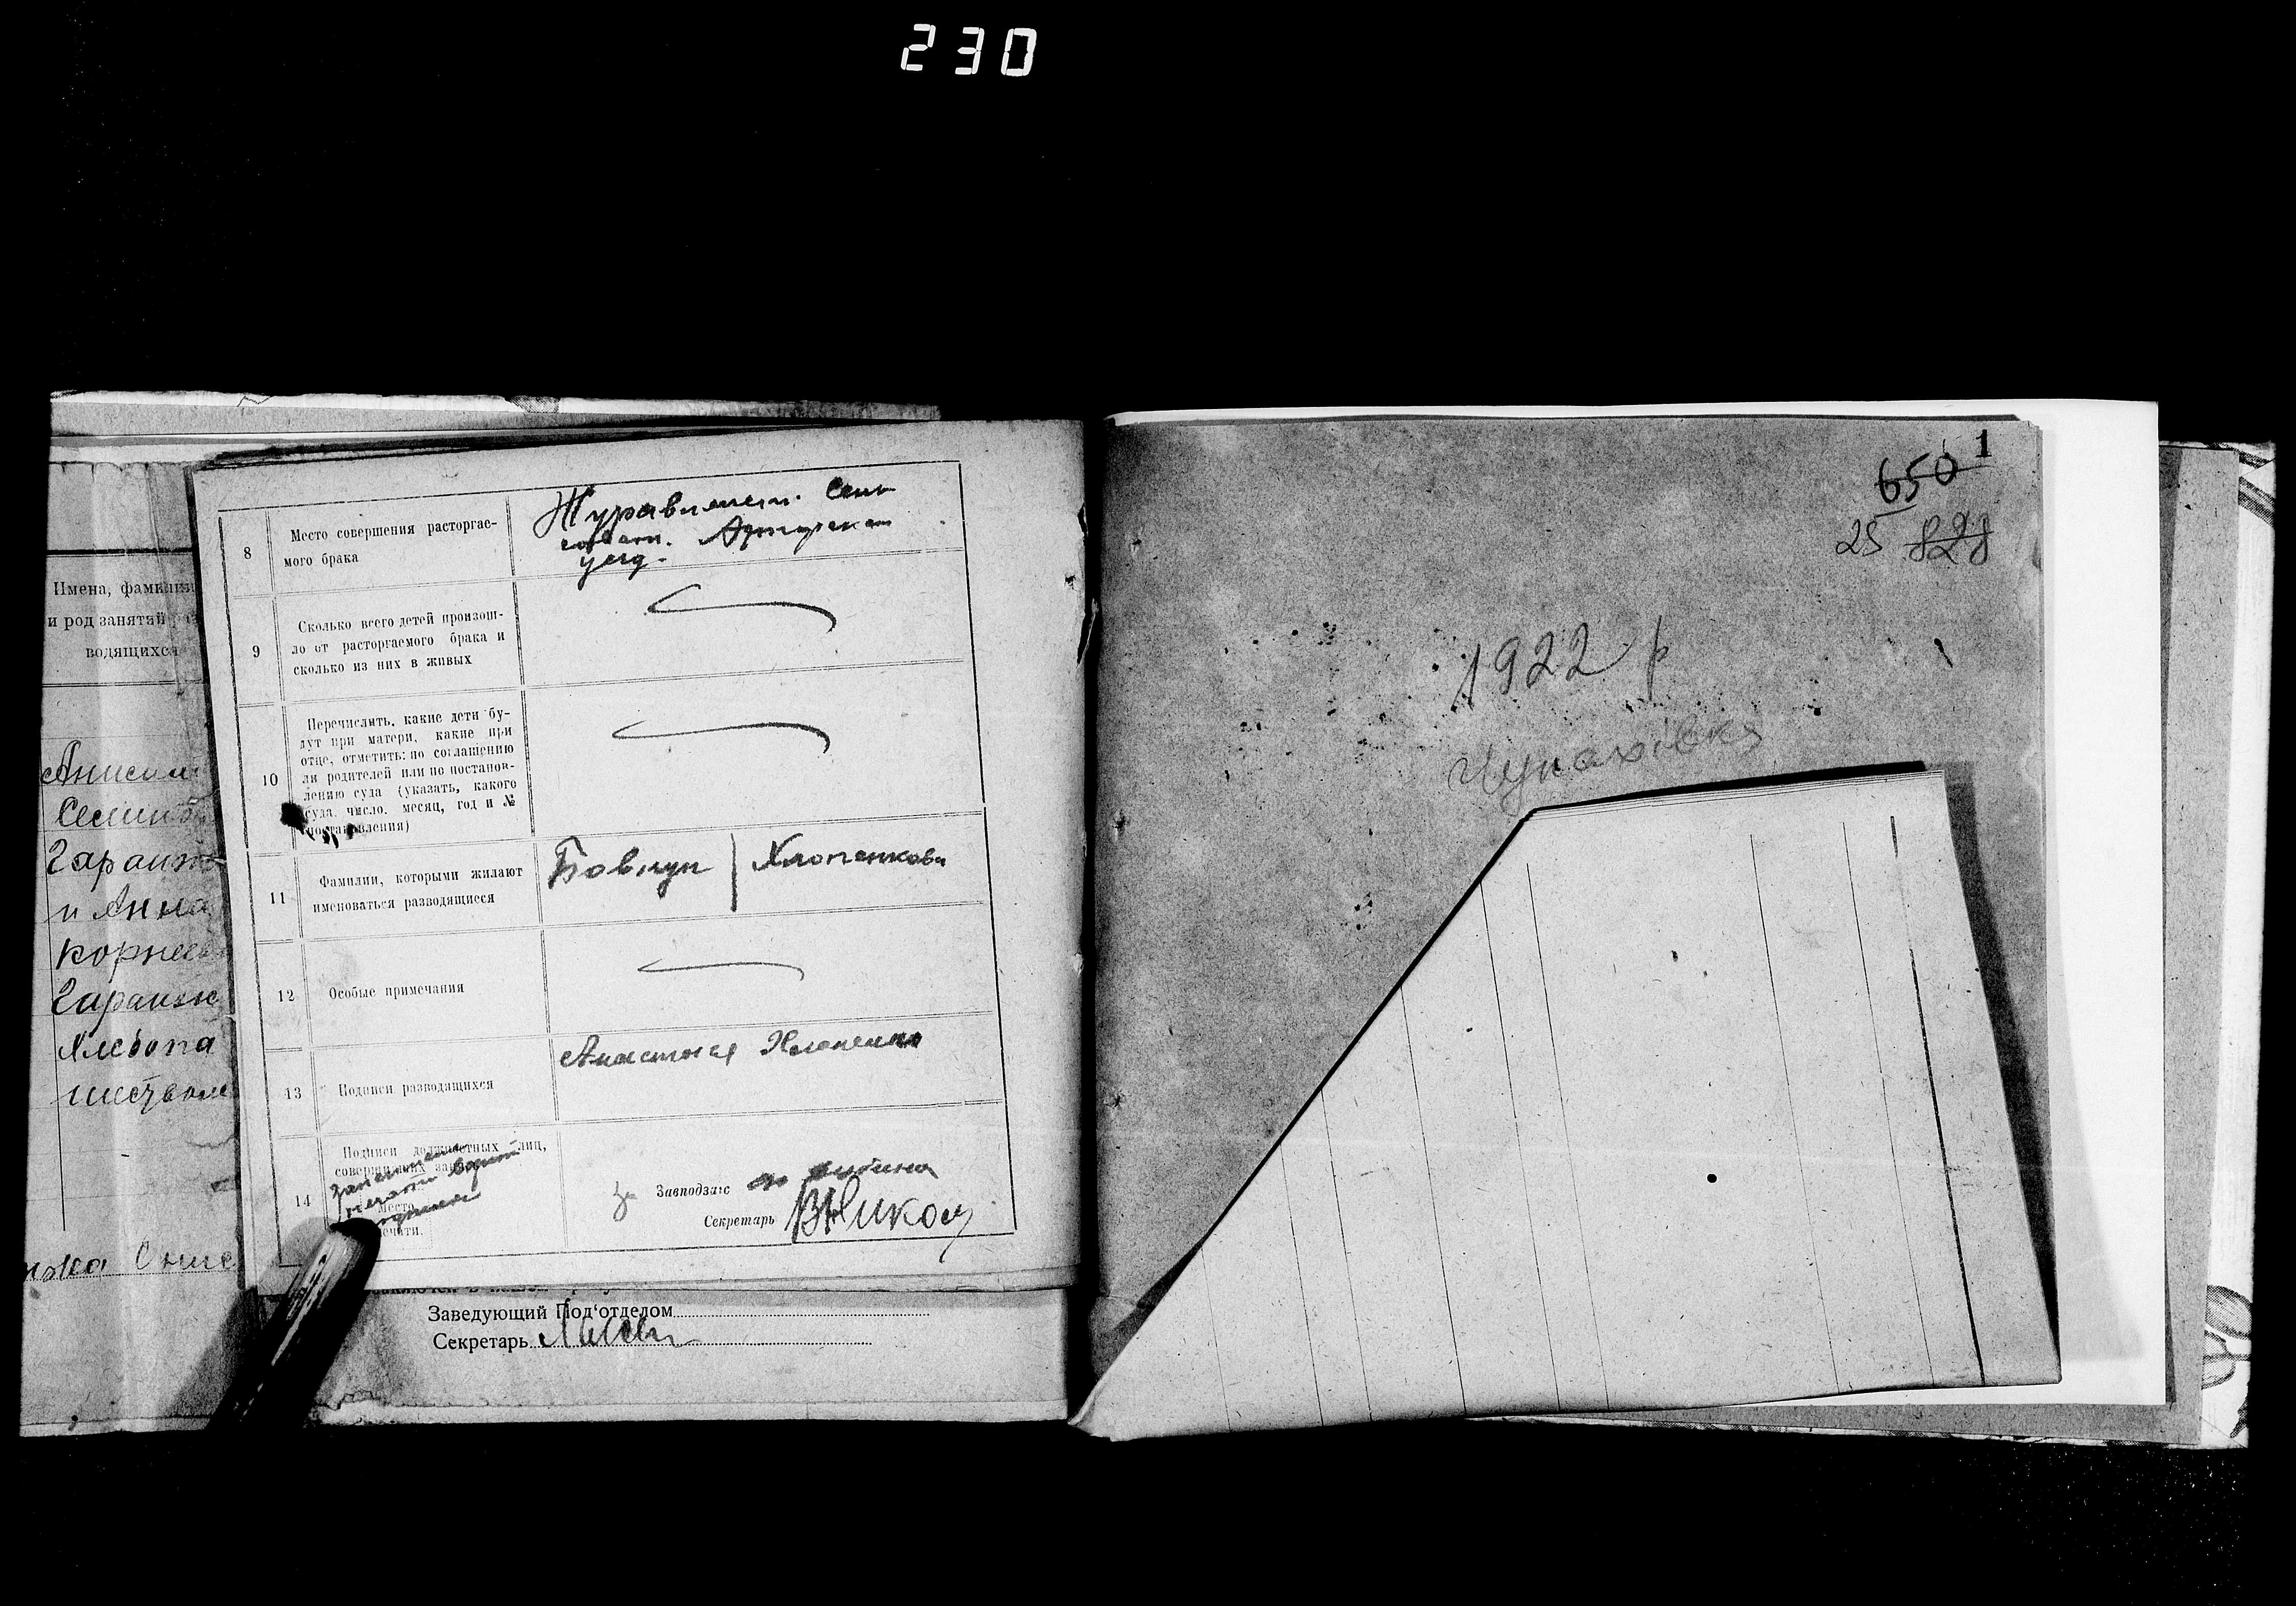 230
Имена, фамилии
и род занятий
водящихся
Анисим
Семинов
Гаранж
и Анна
корнеев
Гаранж
Хлебопа
шеством
8
Место совершения расторгае-
мого брака
Журавленск. Сель
совет.
уезд.
9
Сколько всего детей произош-
ло от расторгаемого брака и
сколько из них в живых
10
Перечислить, какие дети бу-
дут при матери, какие при
отце, отметить: по соглашению
ли родителей или по постанов-
лению суда (указать, какого
суда, число, месяц, год и №
постановления)
11
Фамилии, которыми жилают
именоваться разводящиеся
Бовкун | Хлопенкова
12
Особые примечания
13
Подписи разводящихся
Анастасия Хлопенко
14
Подписи должностных лиц,
совершивших
Место
печати.
За Завподзагс
Секретарь
Заведующий Под'отделом
Секретарь
1
650
25 828
1922 р
Чупахівка